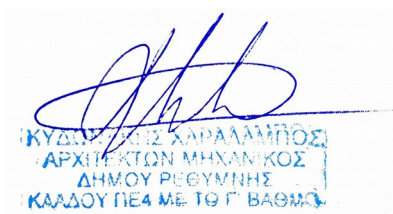 ΧΑΡΑΛΑΜΠΟΣ
ΑΡΧΙΤΕΚΤΩΝ ΜΗΧΑΝΙΚΟΣ
ΔΗΜΟΥ ΡΕΘΥΜΝΗΣ
ΚΛΑΔΟΥ ΠΕ4 ΜΕ ΤΟ Γ' ΒΑΘΜΟ